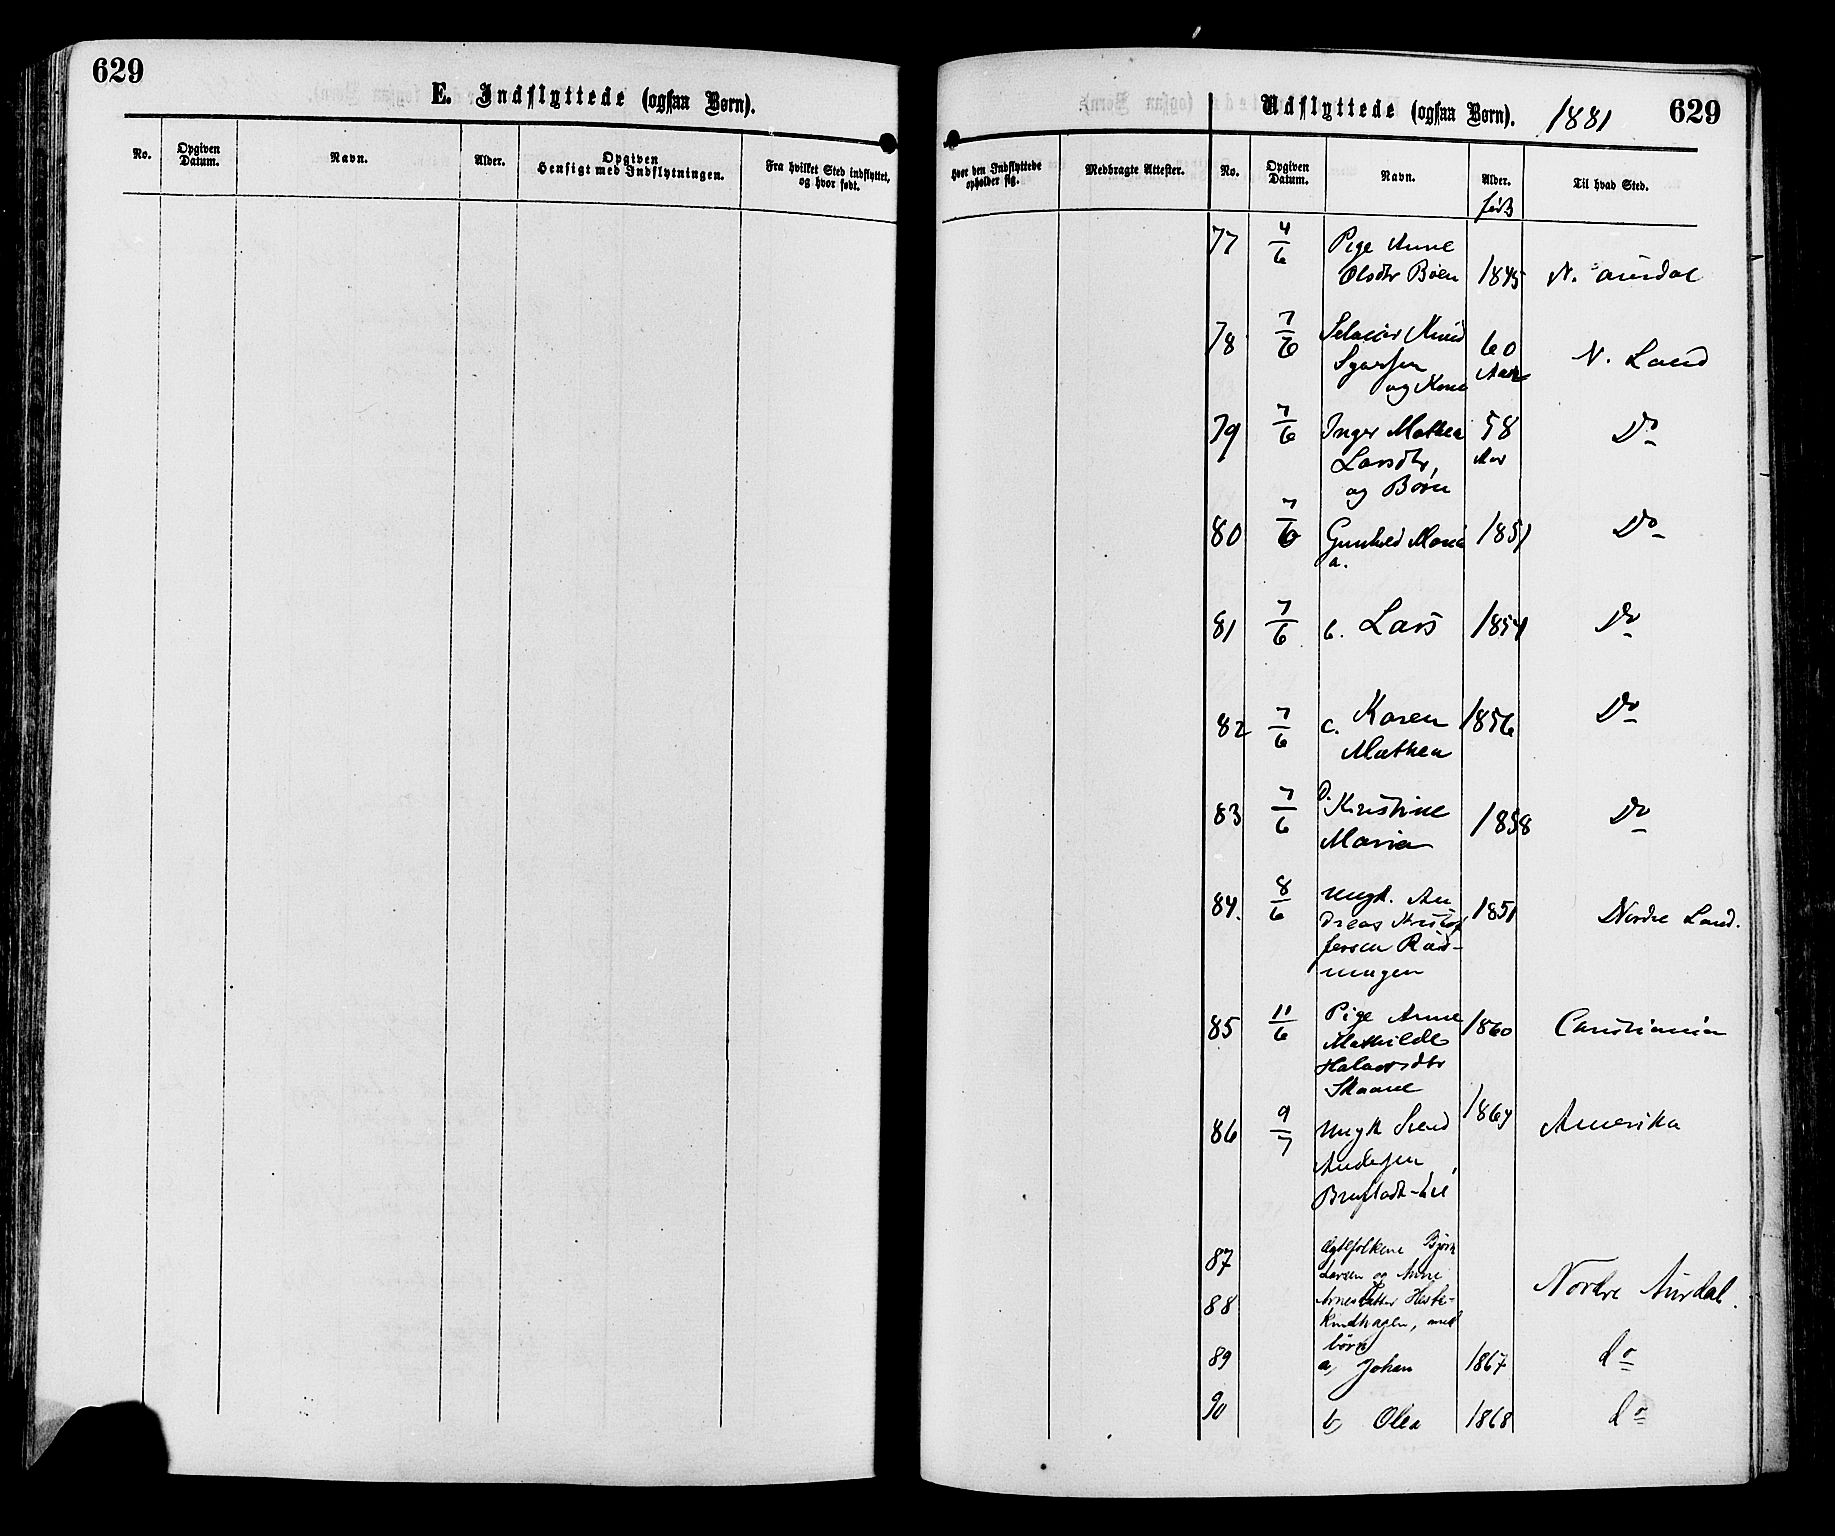 629
E. Indflyttede (ogsaa Børn).
No.
Opgiven Datum.
Navn.
Alder.
Opgiven Hensigt med Indflytningen.
Fra hvilket Sted indflyttet, og hvor født.
Hvor den Indflyttede opholder sig.
Medbragte Attester.
Udflyttede (ogsaa Børn). 1881
629
No.
Opgiven Datum.
Navn.
Alder.
Til hvad Sted.
77 4/6 Pige Anne
Olsdtr Bøen 1845 N. Aurdal
78 7/6 Knud 60 N. Land
og Kone Aar
79 7/6 Inger Mathea 58 Do
Larsdtr, Aar
og Børn
80 7/6 Gunhild Maria 1851 Do
a.
81 7/6 b. Lars 1854 Do
82 7/6 c. Karen 1856 Do
Mathea
83 7/6 D. Kristine 1858 Do
Maria
84. 8/6 Ungk. An 1851 Nordre Land.
dreas Kristof
fersen
85 11/6 Pige Anne 1860 Christiania
Mathilde
Halvorsdtr
Skaane
86 9/7 Ungk Svend Amerika
Andersen
87 Ægtefolkene Bjørn
Larsen og Anne Nordre Aurdal.
88 Arnesdatter Heste-
kindhagen, med
børn
89 a, Johan 1867 do
90 b, Olea 1868 do